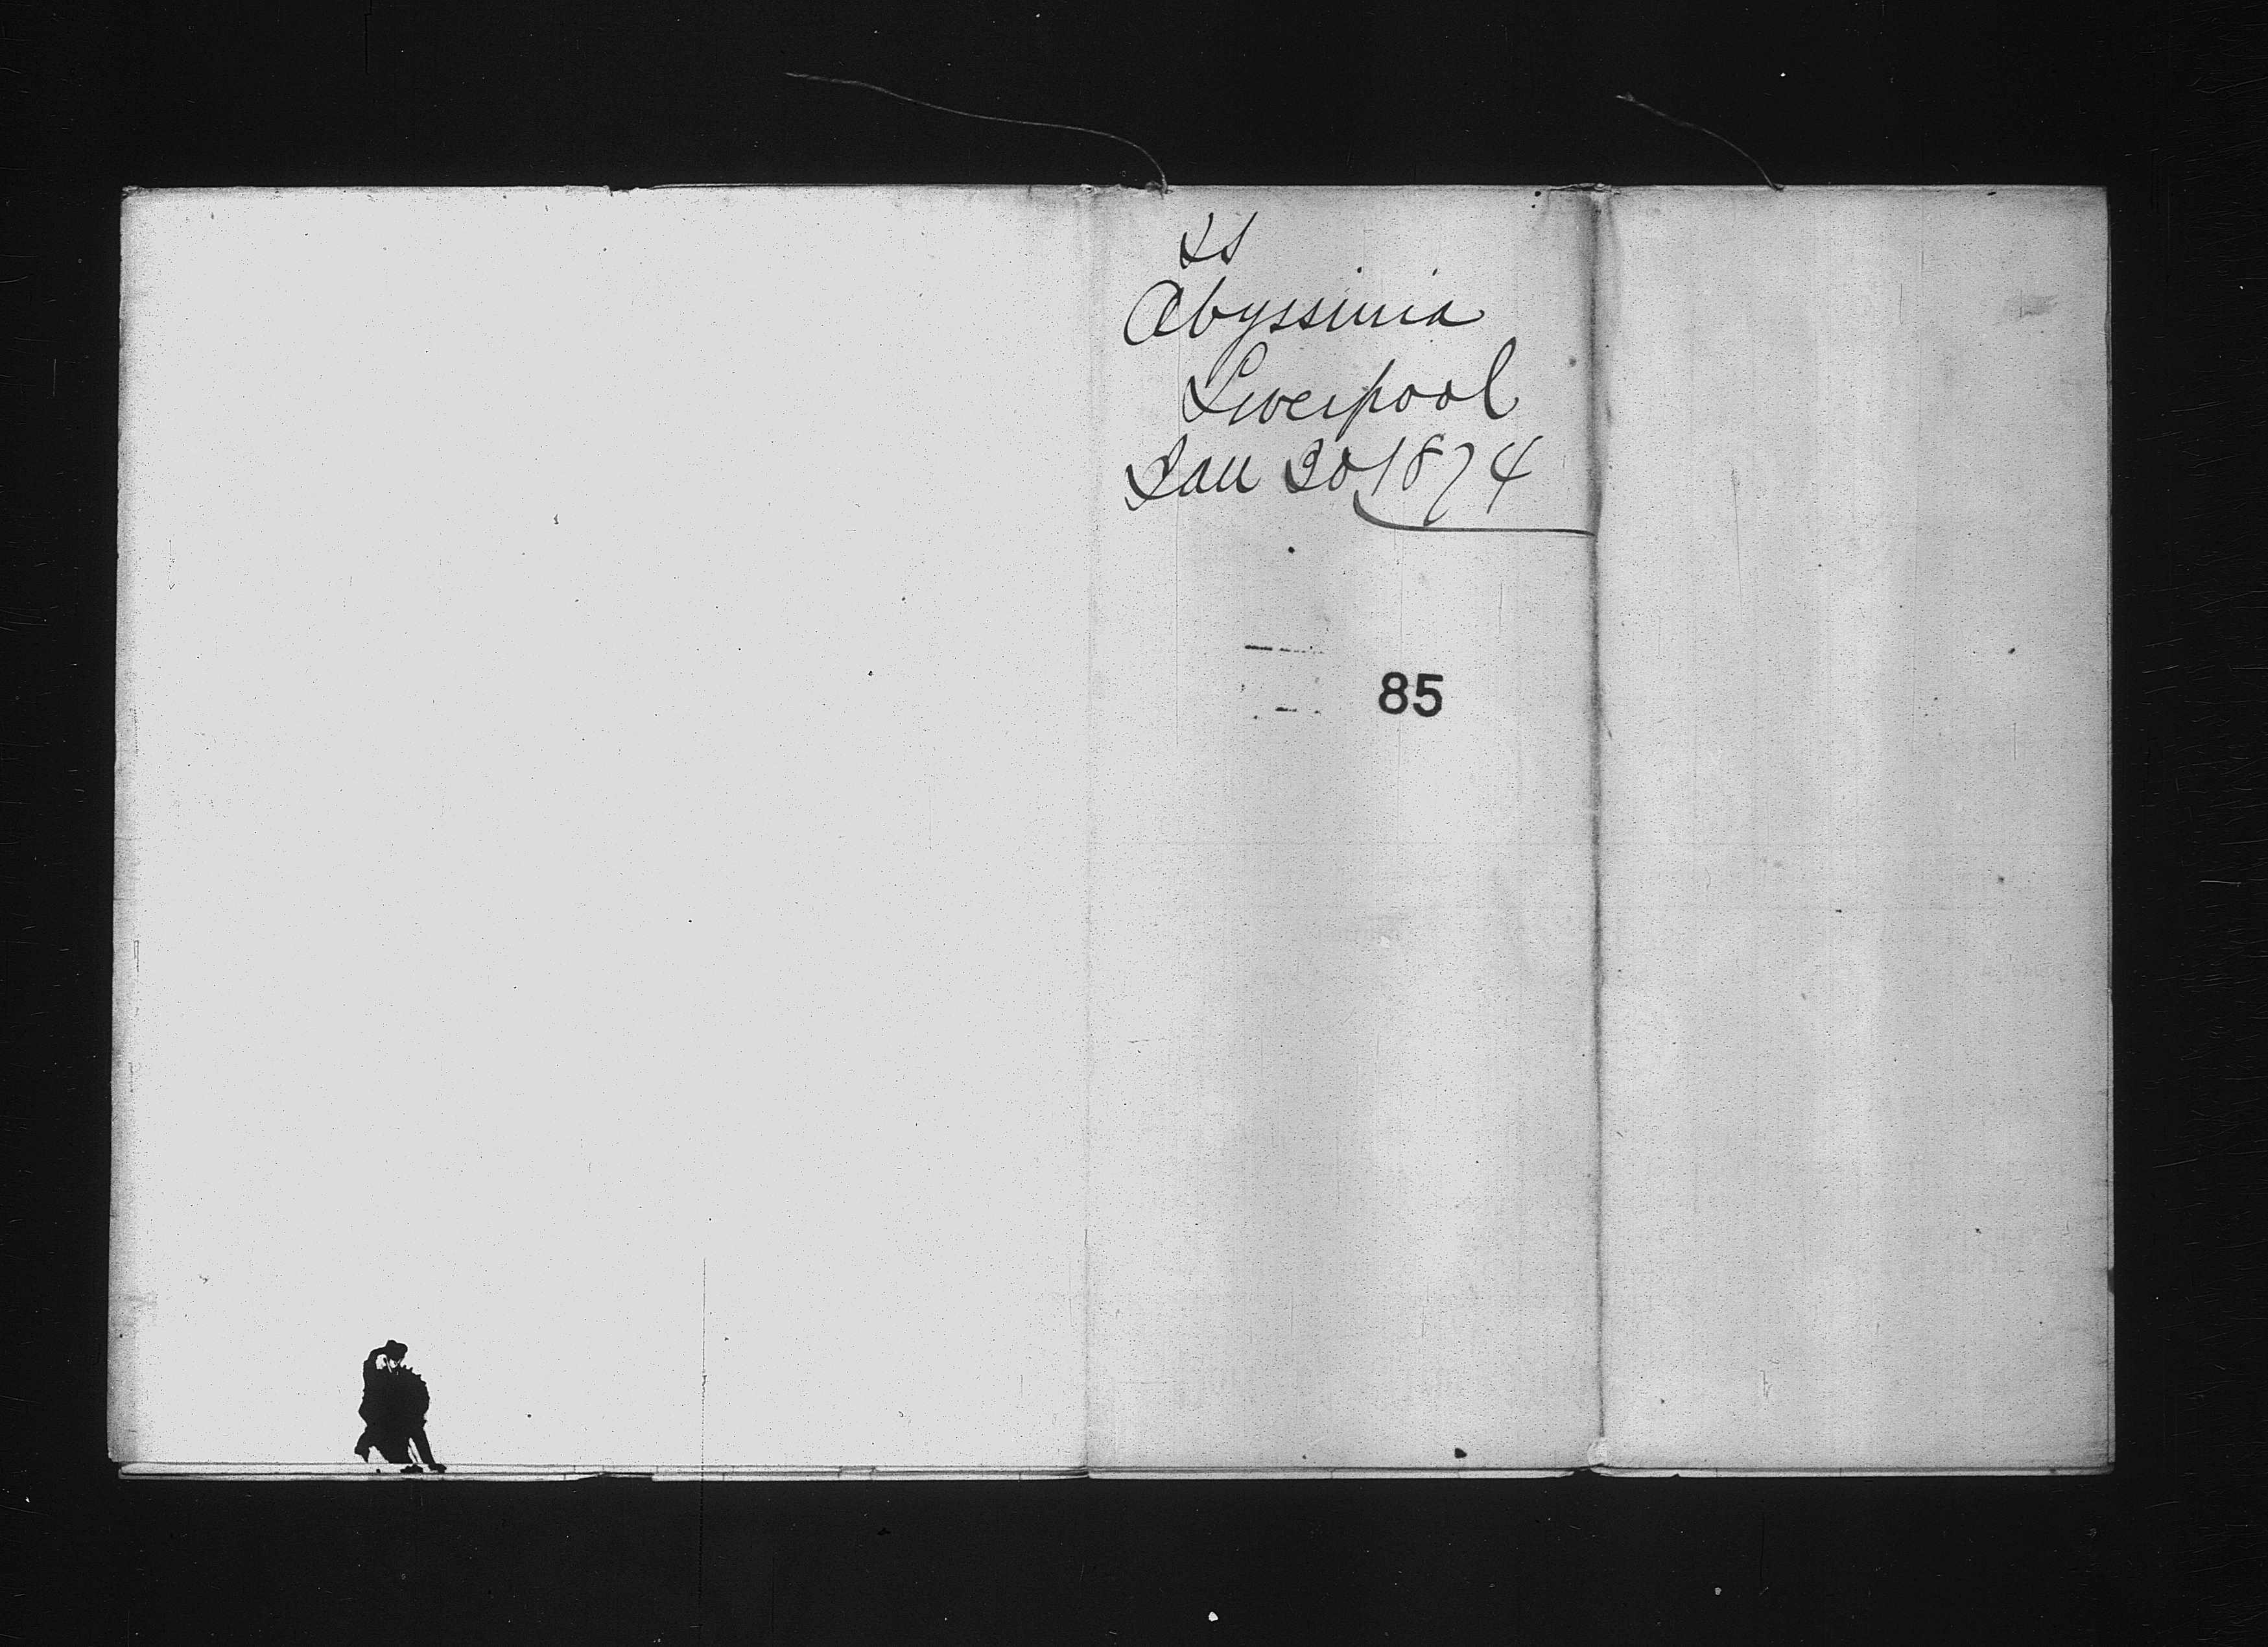 SS
Abyssinia
Liverpool
Jan 30 1874
85